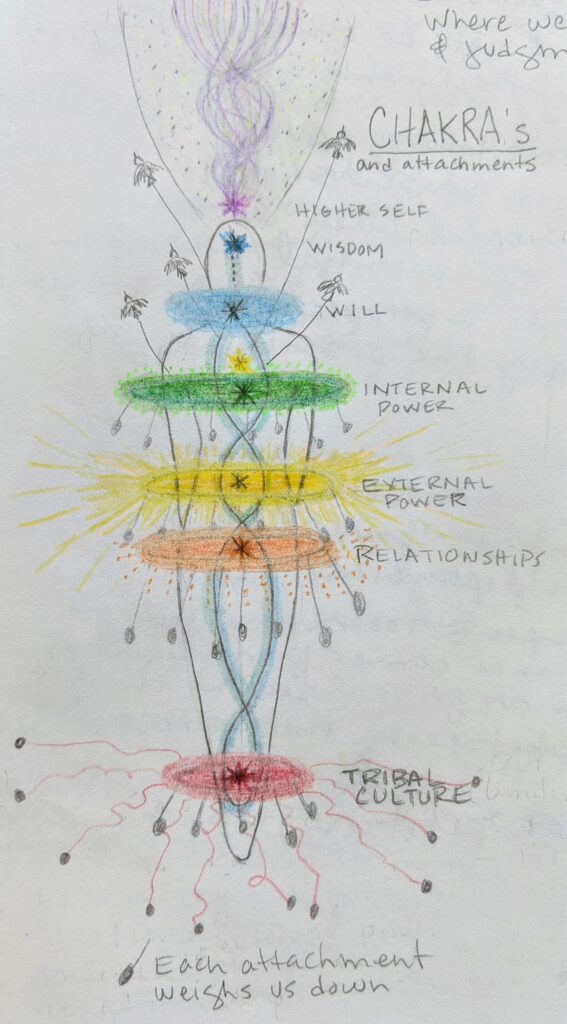 Where we
& judgm
CHAKRA's
and attachments
HIGHER SELF
WISDOM
WILL
INTERNAL
POWER
EXTERNAL
POWER
RELATIONSHIPS
TRIBAL
CULTURE
Each attachment
weighs us down